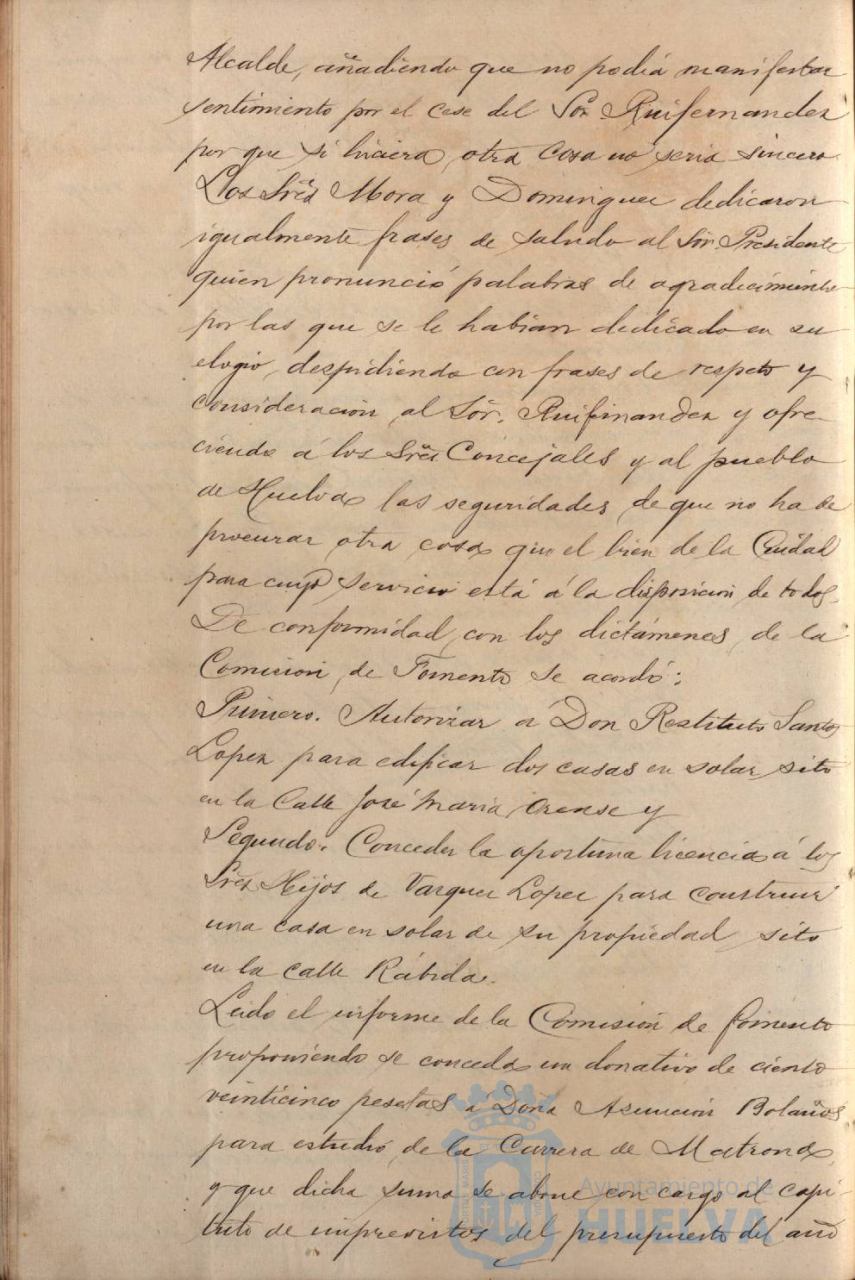 Alcalde, añadiendo que no podiá manifestar
sentimiento por el cese del Sor. Ruifernandez
por que si hiciera otra cosa no seria sincero.
Los Sres Mora y Dominguez dedicaron
igualmente frases de saludo al Sor. Presidente
quien pronunció palabras de agradecimiento
por las que se le habian dedicado en su
elogio, despidiendo con frases de respeto y
consideracion al Sor. Ruifernandez y ofre-
ciendo á los Sres Concejales y al pueblo
de Huelva las seguridades de que no ha de
procurar otra cosa que el bien de la Ciudad
para cuyo servicio está á la disposicion de todos.
De conformidad con los dictámenes de la
Comision de Fomento se acordó:
Primero. Autorizar á Don Restituto Santos
Lopez para edificar dos casas en solar sito
en la Calle José Maria Orense y
Segundo. Conceder la oportuna licencia á los
Sres Hijos de Vazquez Lopez para construir
una casa en solar de su propiedad sito
en la calle Rábida.
Leido el informe de la Comisión de fomento
proponiendo se conceda un donativo de ciento
veinticinco pesetas á Doña Asunción Bolaños
para estudio de la Carrera de Matrona,
y que dicha suma se abone con cargo al capi-
tulo de imprevistos del presupuesto del año
Ayuntamiento de
HUELVA